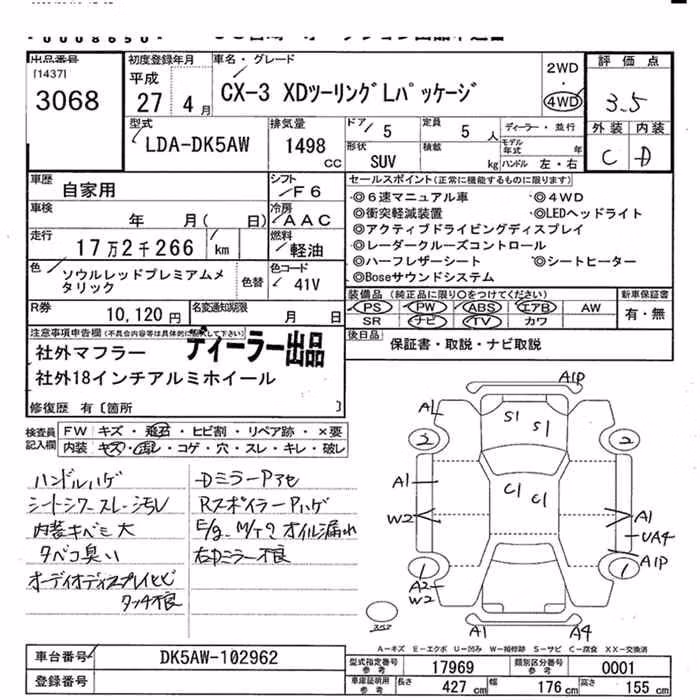 出品番号
[1437]
3068
初度登録年月
平成
27 4月
車名・グレード
CX-3 XDツーリングLパッケージ
2WD
・
4WD
評価点
3.5
外装 内装
C D
型式
LDA-DK5AW
排気量
1498
CC
ドア
5
定員
5人
ディーラー・並行
形状
SUV
積載
kg
モデル年式 年
ハンドル 左・右
車歴
自家用
シフト
F6
車検
年 月( 日)
冷房
AAC
走行
17万2千266 km
燃料
軽油
色
ソウルレッドプレミアムメタリック
色替
色コード
41V
R券
10,120円
名変通知期限
月 日
セールスポイント(正常に機能するものに限ります)
◎6速マニュアル車 ◎4WD
◎衝突軽減装置 ◎LEDヘッドライト
◎アクティブドライビングディスプレイ
◎レーダークルーズコントロール
◎ハーフレザーシート ◎シートヒーター
◎Boseサウンドシステム
装備品(純正品に限り○をつけてください)
PS PW ABS エアB AW
SR ナビ TV カワ
新車保証書
有・無
後日品
保証書・取説・ナビ取説
注意事項申告欄
ディーラー出品
社外マフラー
社外18インチアルミホイール
修復歴 有〔箇所 〕
検査員記入欄
FW キズ・飛石・ヒビ割・リペア跡・×要
内装 キズ・汚レ・コゲ・穴・スレ・キレ・破レ
ハンドルハゲ
シートシワ・スレ・汚レ
内装キズミ大
タバコ臭い
オーディオディスプレイヒビ
タッチ不良
DミラーPアセ
RスポイラーPハゲ
E/g、M/T? オイル漏れ
右Dミラー不良
A1P
A1
S1 S1
2 2
A1
C1 C1
W2
A1
UA4
A1P
1 1
A2
W2
スペア
A1 A4
A-キズ E-エクボ U-凹み W-補修跡 S-サビ C-腐食 XX-交換済
車台番号
DK5AW-102962
登録番号
型式指定番号
参考
17969
類別区分番号
参考
0001
車庫証明用
参考
長さ
427 cm
幅
176 cm
高さ
155 cm